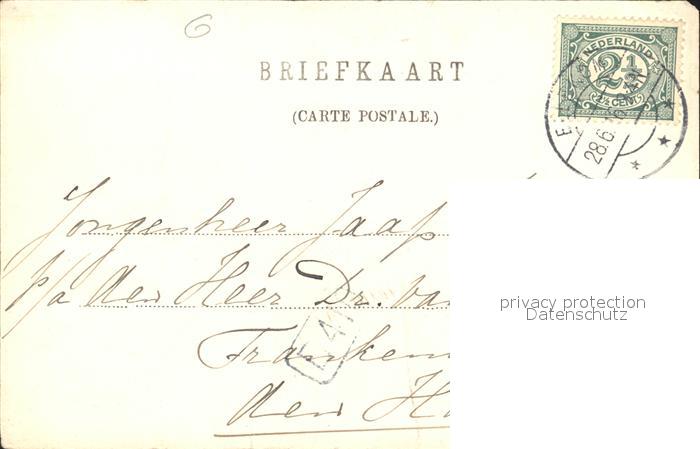 6
BRIEFKAART
(CARTE POSTALE.)
NEDERLAND
2½
2½ CENT
28.6
Jongenheer Jaap
p/a den Heer Dr. va
41
Franken
den H
privacy protection
Datenschutz